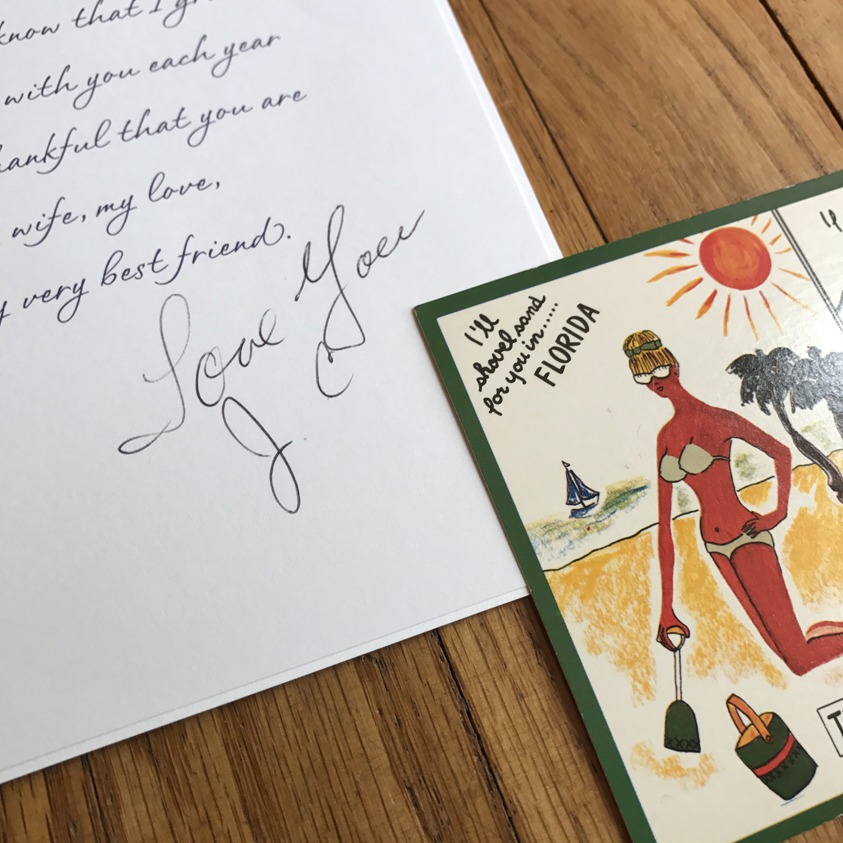 know that I
with you each year
thankful that you are
wife, my love,
very best friend.
Love You
J
I'll
shovel sand
for you in.....
FLORIDA